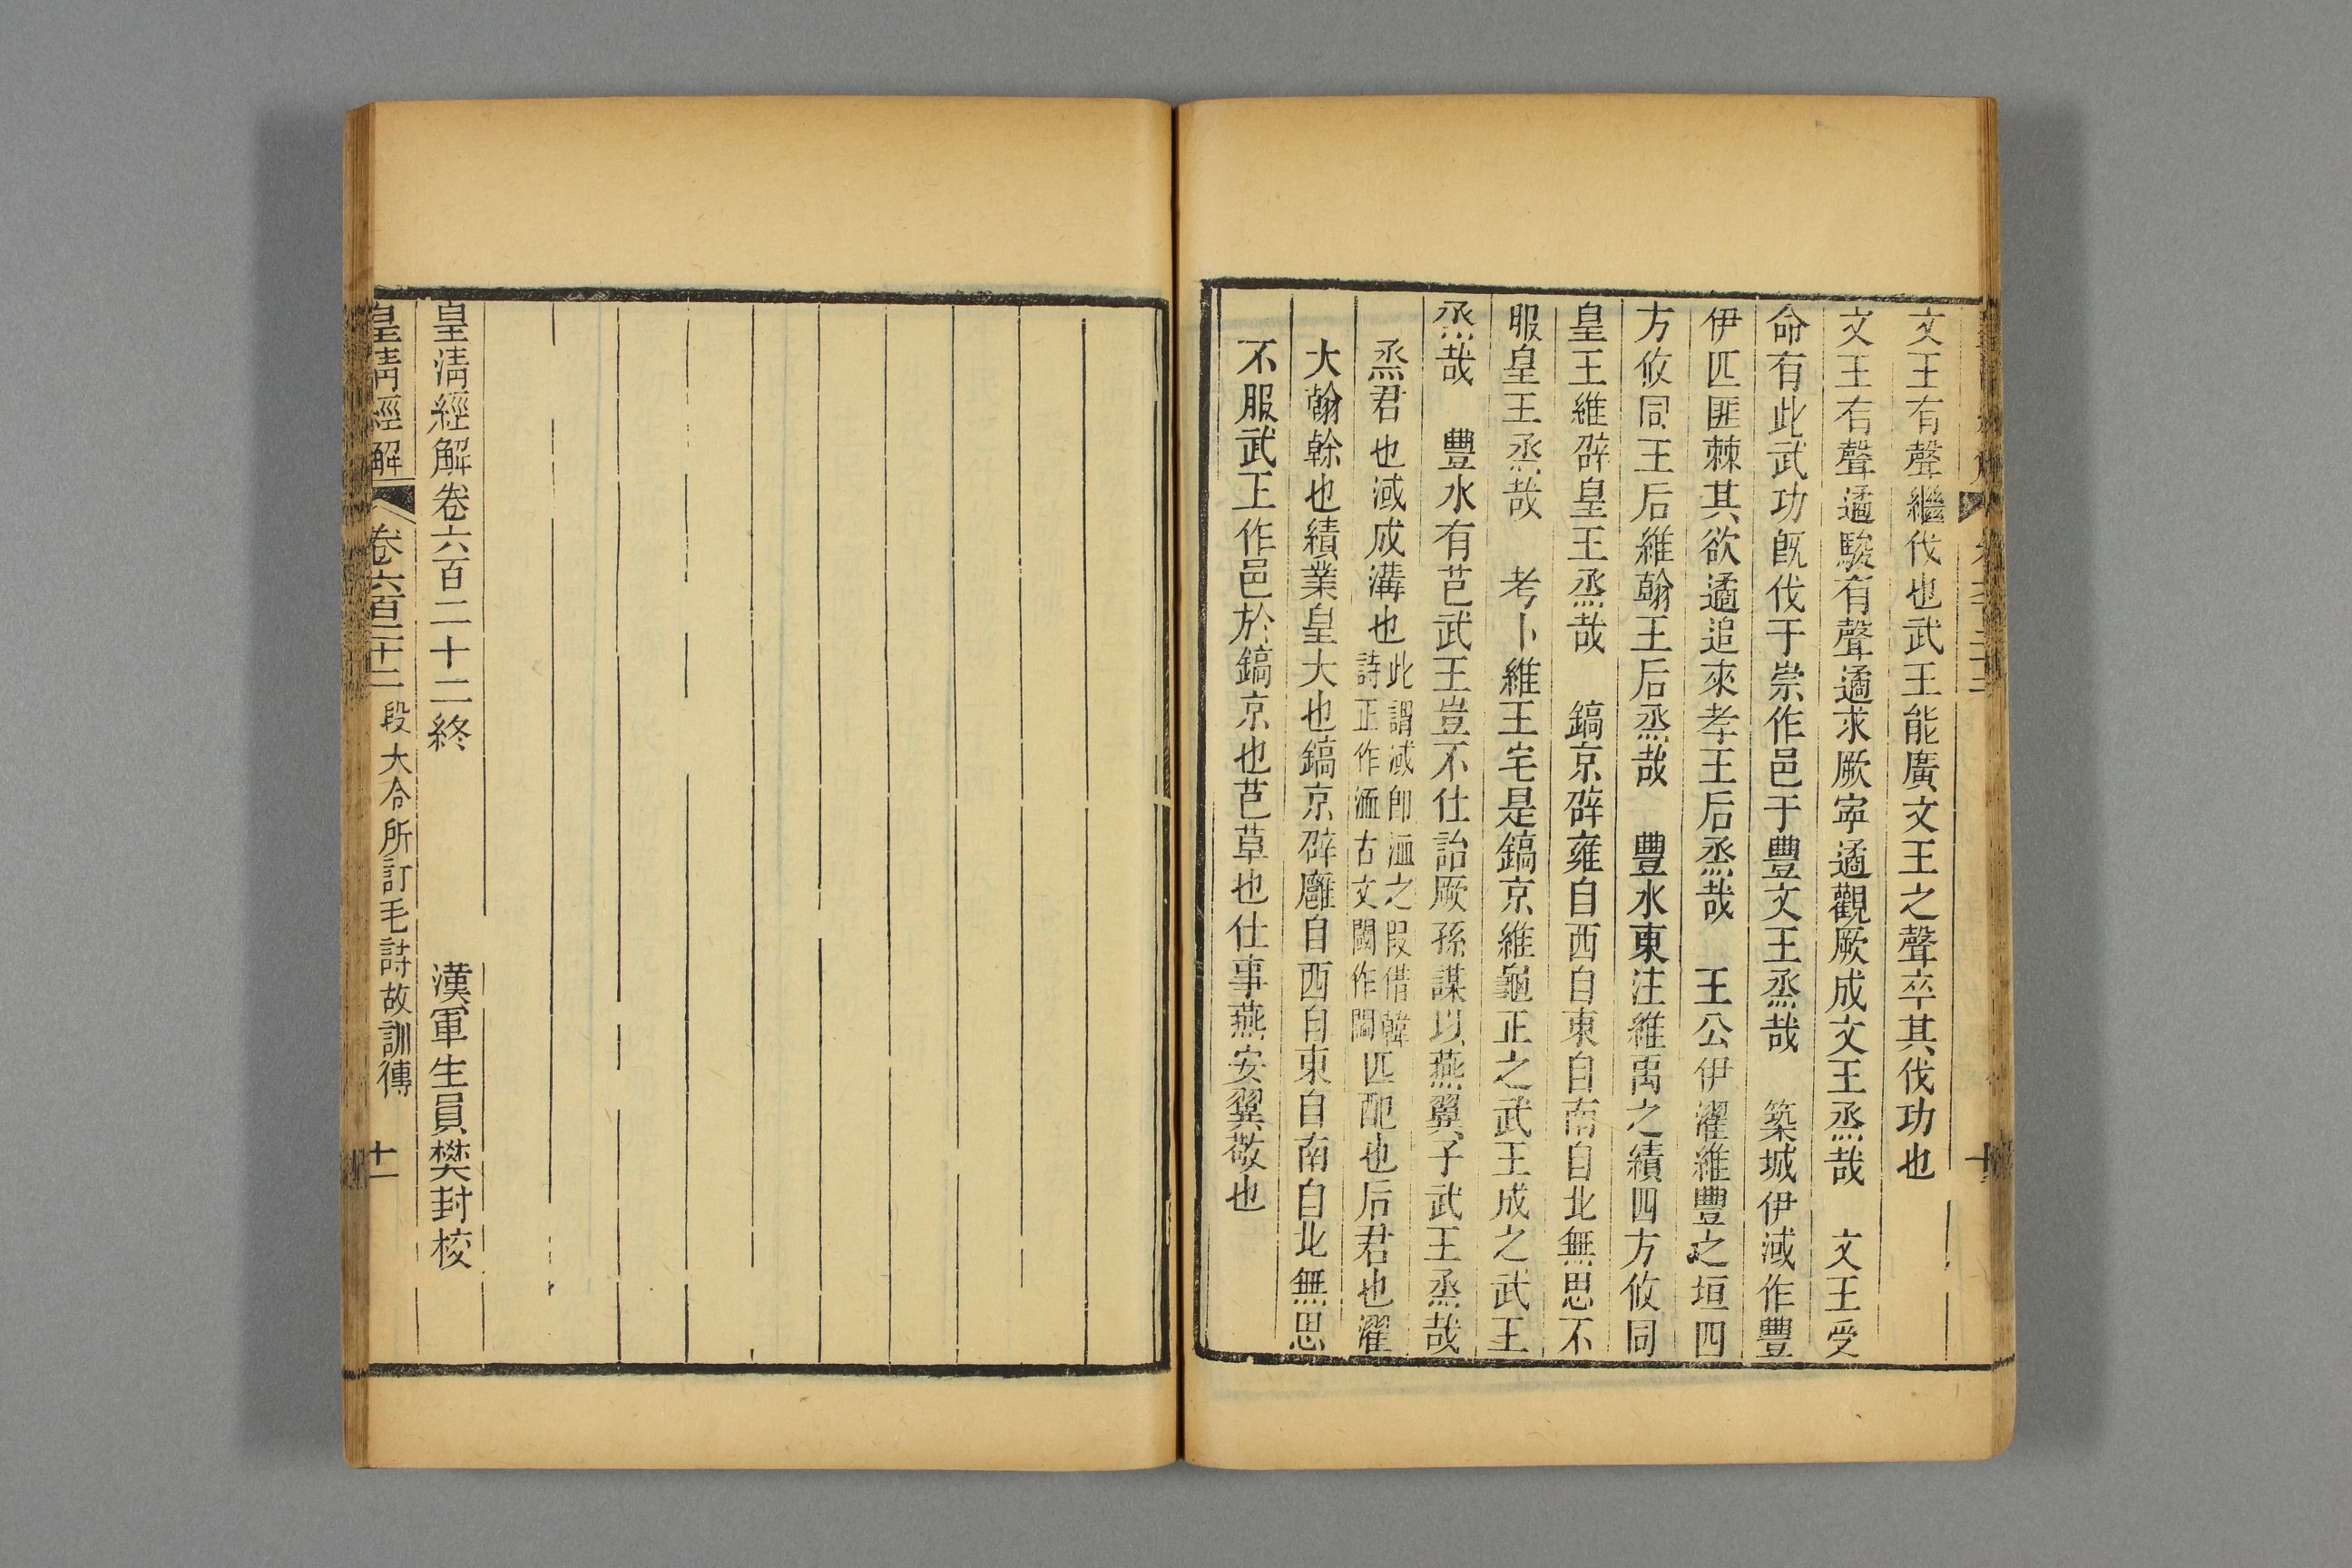 文王有聲繼伐也武王能廣文王之聲卒其伐功也
文王有聲遹駿有聲遹求厥寍遹觀厥成文王烝哉　文王受
命有此武功旣伐于崇作邑于豐文王烝哉　築城伊淢作豐
伊匹匪棘其欲遹追來孝王后烝哉　王公伊濯維豐之垣四
方攸同王后維翰王后烝哉　豐水東注維禹之績四方攸同
皇王維辟皇王烝哉　鎬京辟雍自西自東自南自北無思不
服皇王烝哉　考卜維王宅是鎬京維龜正之武王成之武王
烝哉　豐水有芑武王豈不仕詒厥孫謀以燕翼子武王烝哉
烝君也淢成溝也此謂淢卽洫之叚借韓詩正作洫古文閾作䦗匹配也后君也濯
大翰榦也績業皇大也鎬京辟廱自西自東自南自北無思
不服武王作邑於鎬京也芑草也仕事燕安翼敬也
十
皇淸經解卷六百二十二終　漢軍生員樊封校
皇淸經解　卷六百二十二　段大令所訂毛詩故訓傳　十一